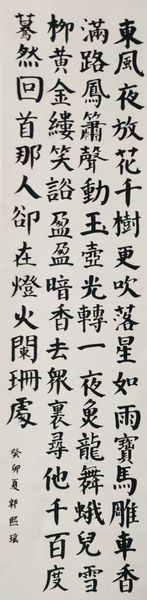 東風夜放花千樹更吹落星如雨寶馬雕車香
滿路鳳簫聲動玉壺光轉一夜魚龍舞蛾兒雪
柳黃金縷笑語盈盈暗香去衆裏尋他千百度
驀然回首那人卻在燈火闌珊處
癸卯夏郭熙瑤